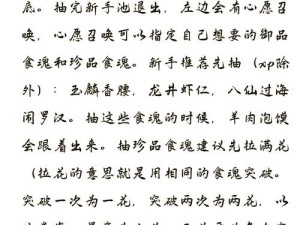 底。抽完新手池退出，左边会有心愿召
唤，心愿召唤可以指定自己想要的御品
食魂和珍品食魂。新手推荐先抽（xp除
外）：玉麟香腰，龙井虾仁，八仙过海
闹罗汉。抽这些食魂的时候，羊肉泡馍
会跟着出来。抽珍品食魂建议先拉满花
（拉花的意思就是用相同的食魂突破。
突破一次为一花，突破两次为两花，以